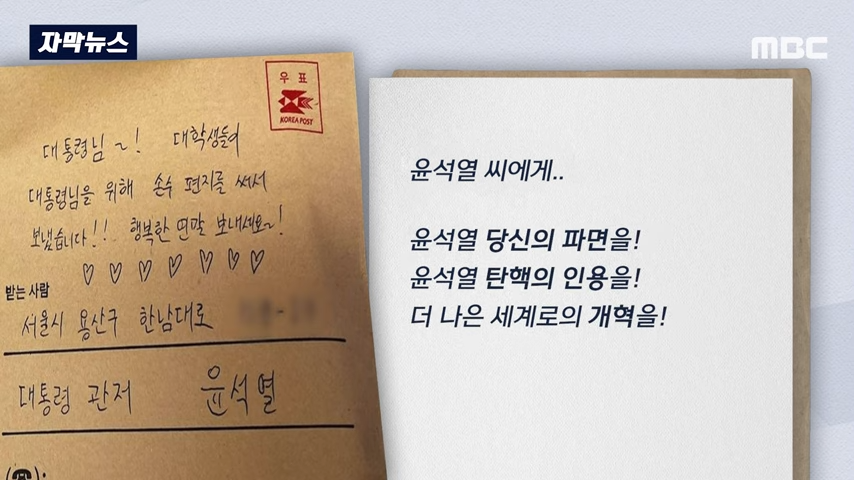 자막뉴스
MBC
우표
KOREA POST
대통령님~! 대학생들이
대통령님을 위해 손수 편지를 써서
보냈습니다!! 행복한 연말 보내세요~!
♡ ♡ ♡ ♡ ♡ ♡ ♡
받는 사람
서울시 용산구 한남대로
대통령 관저 윤석열
(☎):
윤석열 씨에게..
윤석열 당신의 파면을!
윤석열 탄핵의 인용을!
더 나은 세계로의 개혁을!